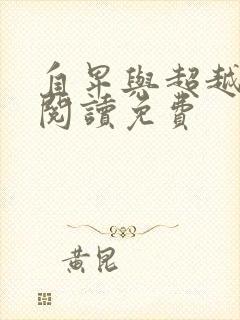 自卑與超越
閱讀免費
黃昆